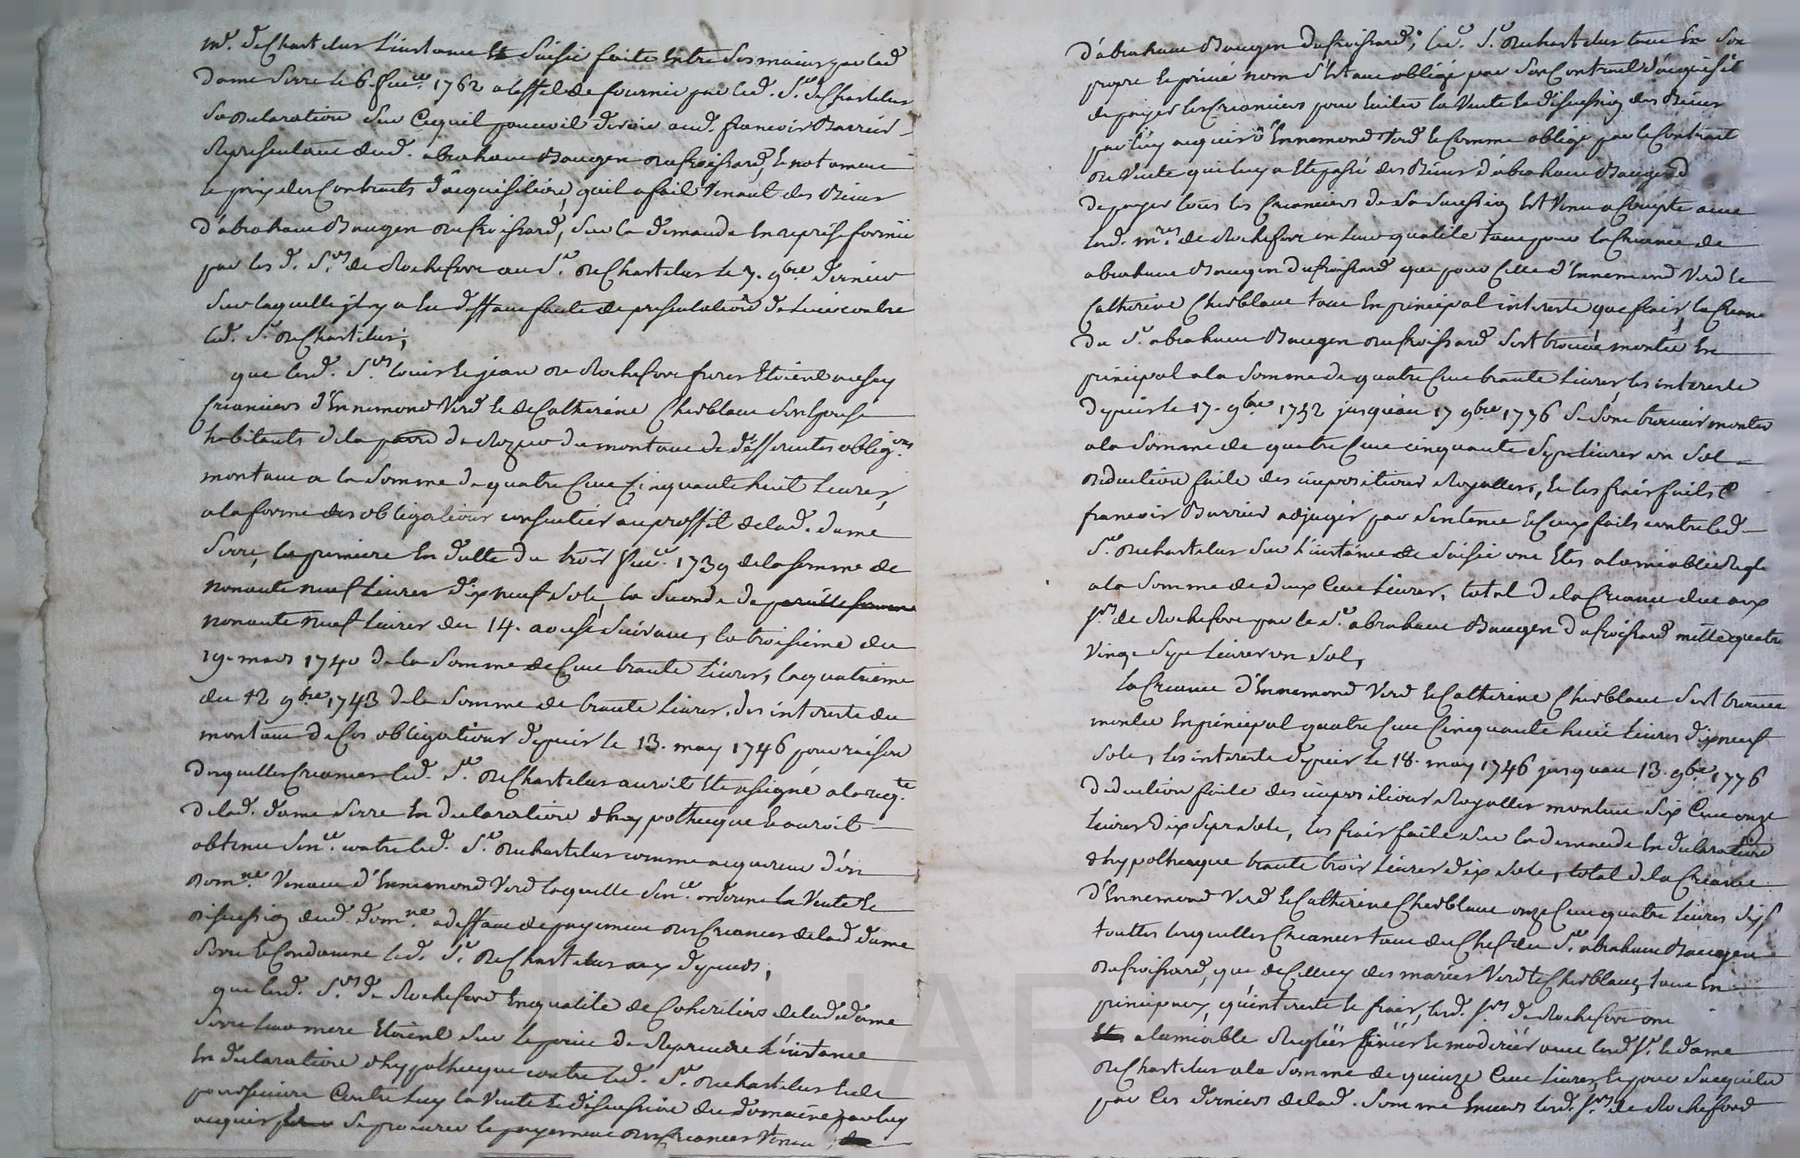 mr. de Chastelus l'instance et Saisie faite entre ses mains par lad
dame Serre le 6. fevr. 1762 a leffet de fournir par led. Sr. de Chastelus
Sa declaration Sur Ce quil pouvoit devoir aud. francois Barrier
Representant dud. abraham Baugen du froissard, et notamment
le prix des Contrats d'acquisitions, quil a fait Venant des Biens
d'abraham Baugen du froissard, Sur la demande en reprise formée
par les d. Srs. de Rochefort au Sr. de Chastelus le 7. 9bre dernier
Sur laquelle il y a eu deffaut faute de presentation de luy contre
led. Sr. de Chastelus;
que lesd. Srs. louis et jean de Rochefort freres Etoient aussy
Créanciers d'Ennemond Verd et de Catherine Cherblanc Son Epouse
habitants de la parre de Rozier du montant de differentes obligons
montant a la Somme de quatre Cent Cinquante huit Livres,
a la forme des obligations consenties au proffit de lad. dame
Serre, la premiere en datte du trois fevr. 1739 de la Somme de
nonante neuf Livres dix neuf Sols, la Seconde de pareille Somme
nonante neuf Livres du 14. aoust Suivant, la troisieme du
19. mars 1740 de la Somme de Cent trente Livres, la quatrieme
du 12 9bre 1743 de la Somme de trente Livres. des interests du
montant de Ces obligations depuis le 13. may 1746 pour raison
desquelles Creances led. Sr. de Chastelus auroit Eté assigné a la reqte
de lad. dame Serre en declaration dhypotheque et auroit
obtenu Sence. contre led. Sr. de Chastelus comme acquereur d'un
Domne. Venant d'Ennemond Verd laquelle Sence. ordonne la Vente et
discussion dud. domne. a deffaut de payement des Creances de lad dame
Serre et Condamne led. Sr. de Chastelus aux depends;
que lesd. Srs. de Rochefort En qualité de Coheritiers de lad. dame
Serre leur mere Etoient Sur le point de Reprendre l'instance
En declaration dhypotheque contre led. Sr. de Chastelus et de
poursuivre Contre Luy la Vente et discussion du domaine par luy
acquis Se procurer le payement des Creances Venant
d'abraham Baugen du froissard; led. Sr. de Chastelus tant En Son
propre et privé nom S'etant obligé par Son Contrat d'acquisit
de payer les Creanciers pour Eviter la Vente et discussion des Biens
par luy acquis d'Ennemond Verd et Comme obligé par le Contrat
de Vente qui luy a Eté passé des Biens d'abraham Baugend
de payer tous les Creanciers de Sa Succession Est Venu a Compte avec
lesd. mrs. de Rochefort en leur qualité tant pour la Creance de
abraham Baugen du froissard que pour Celle d'Ennemond Verd et
Catherine Cherblanc tant En principal interests que frais, la Creance
du Sr. abraham Baugen du froissard S'est trouvée montée En
principal a la Somme de quatre Cent trente Livres, les interests
depuis le 17. 9bre 1752 jusqu'au 17 9bre 1776 Se Sont trouvés montés
a la Somme de quatre Cent cinquante Sept Livres un Sol
deduction faite des impositions Royalles, et les frais faits C
francois Barrier adjugés par Sentence et Ceux faits contre led
Sr. de Chastelus Sur l'instance de Saisie ont Etés a lamiable Reglé
a la Somme de deux Cent Livres, total de la Creance due aux
Srs. de Rochefort par le Sr. abraham Baugen du froissard mille quatre
Vingt Sept Livres un Sol,
la Creance d'Ennemond Verd et Catherine Cherblanc S'est trouvée
montée En principal quatre Cent Cinquante huit Livres dix neuf
Sols, les interests depuis le 18. may 1746 jusquau 13. 9bre 1776
deduction faite des impositions Royalles montent Six Cent onze
Livres dix Sept Sols, les frais faits Sur la demande En declaration
dhypotheque trente trois Livres dix Sols, total de la Creance
d'Ennemond Verd et Catherine Cherblanc onze Cent quatre Livres Six S
touttes lesquelles Creances tant du Chef du Sr. abraham Baugen
du froissard, que de Celluy des mariés Verd et Cherblanc, tant En
principaux, qu'interests et frais, lesd. Srs. de Rochefort ont
a lamiable Reglées fixées et moderées avec lesd. Sr. et dame
de Chastelus a la Somme de quinze Cent Livres, et pour Sacquitter
par Ces derniers de lad. Somme Envers lesd. Srs. de Rocheford